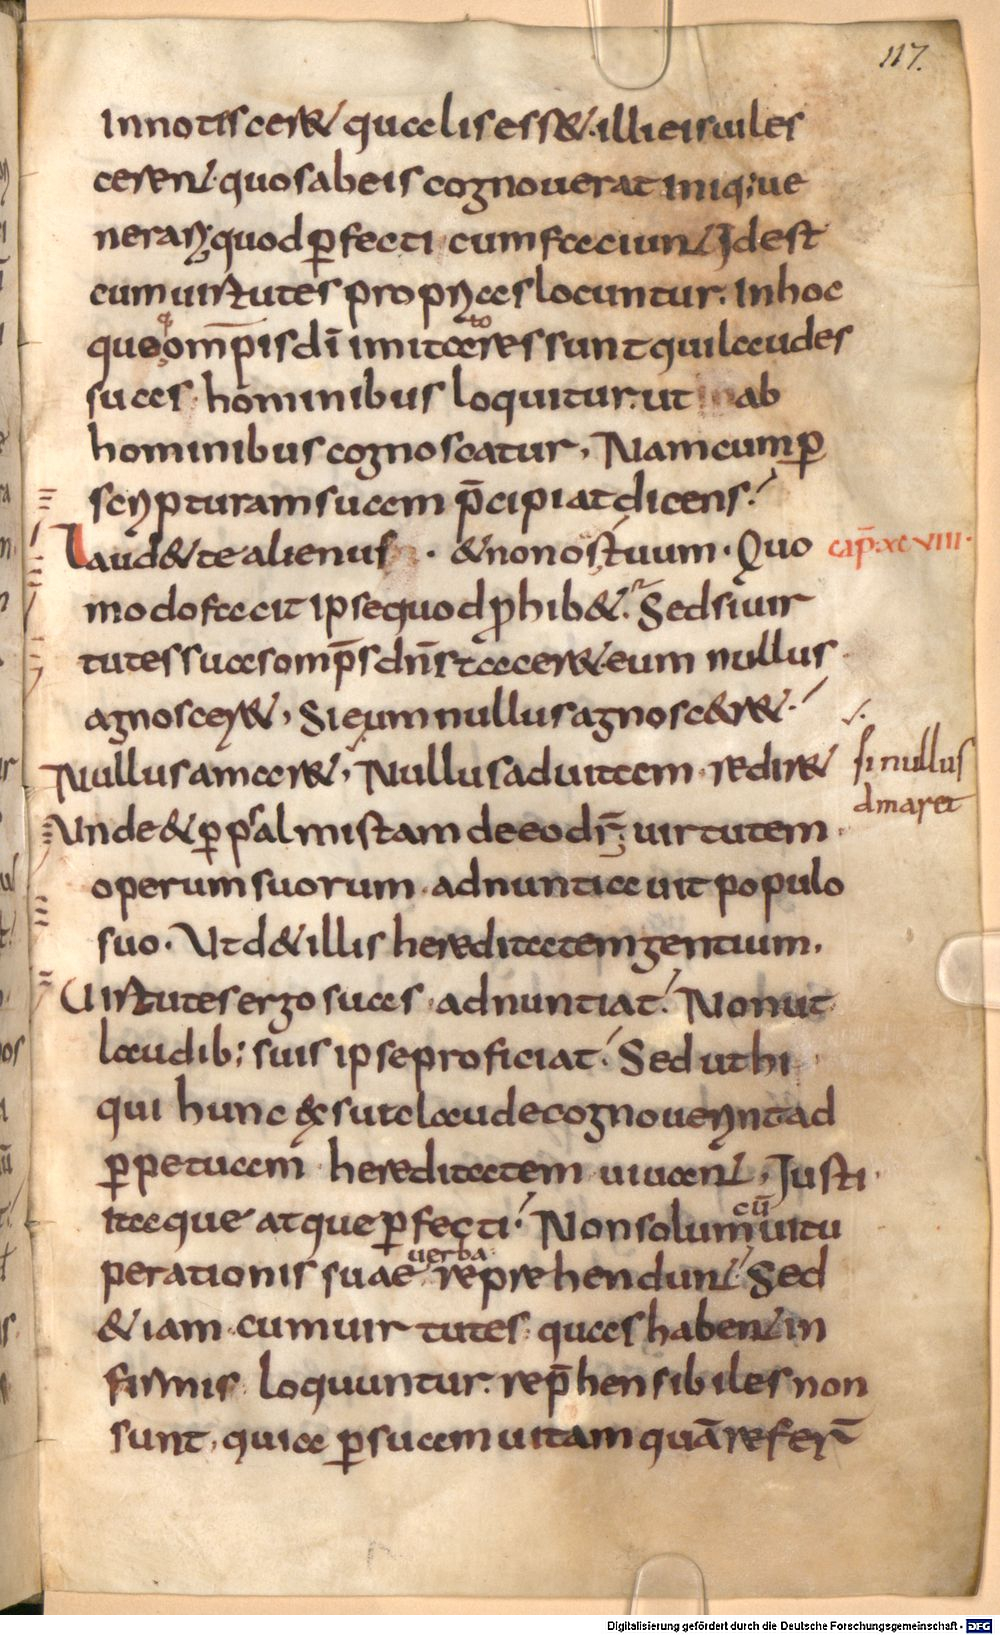 117.
innotesceret qualis esset. illi eis uiles
cerent. quos ab eis cognouerat iniq; ue
nerari; quod ꝑfecti cum faciunt Idest
cum uirtutes proprias locuntur. In hoc
que omp̄is dī imitatores sunt qui laudes
suas hominibus loquitur. ut ab
hominibus cognoscatur, Nam cum ꝑ
scripturam suam p̄cipiat dicens.
Laudet te alienus · & non os tuum · Quo
cap̄. xcviiii.
modo facit ipse quod ꝓhibet. Sed si uir
tutes suas omp̄s dn̄s taceret. eum nullus
agnosceret, Si eum nullus agnosceret.
Nullus amaret, Nullus ad uitam rediret
si nullus
amaret
Unde & ꝑ psalmistam de eo dr̄; uirtutem
operum suorum adnuntiauit populo
suo. Ut det illis hereditatem gentium.
Uirtutes ergo suas adnuntiat. Non ut
laudib; suis ipse proficiat. Sed ut hi
qui hunc ex sua laude cognouerint ad
ꝑpetuam hereditatem uiuant, Justi
itaque atque ꝑfecti. Non solum cū uitu
perationis suae uerba reprehendunt. Sed
& iam cum uirtutes quas habent in
firmis loquuntur. rep̄hensibiles non
sunt, quia ꝑ suam uitam quā refer̄
Digitalisierung gefördert durch die Deutsche Forschungsgemeinschaft - DFG